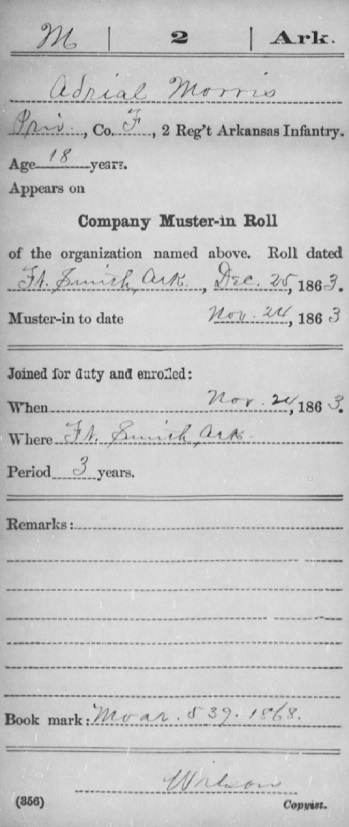 M | 2 | Ark.
Adrial Morris
Priv, Co. F, 2 Reg't Arkansas Infantry.
Age 18 years.
Appears on
Company Muster-in Roll
of the organization named above. Roll dated
Ft. Smith, Ark., Dec. 25, 1863.
Muster-in to date Nov. 24, 1863
Joined for duty and enrolled:
When Nov. 24, 1863.
Where Ft. Smith, Ark.
Period 3 years.
Remarks:
Book mark: Mo ar. 539. 1868.
Wilson
(356) Copyist.